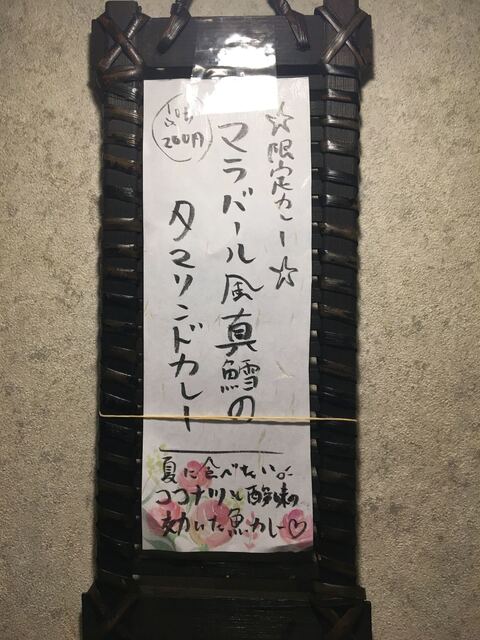 ☆限定カレー☆
マラバール風真鱈の
タマリンドカレー
200円
夏に食べたい
ココナツと酸味の
効いた魚カレー♡